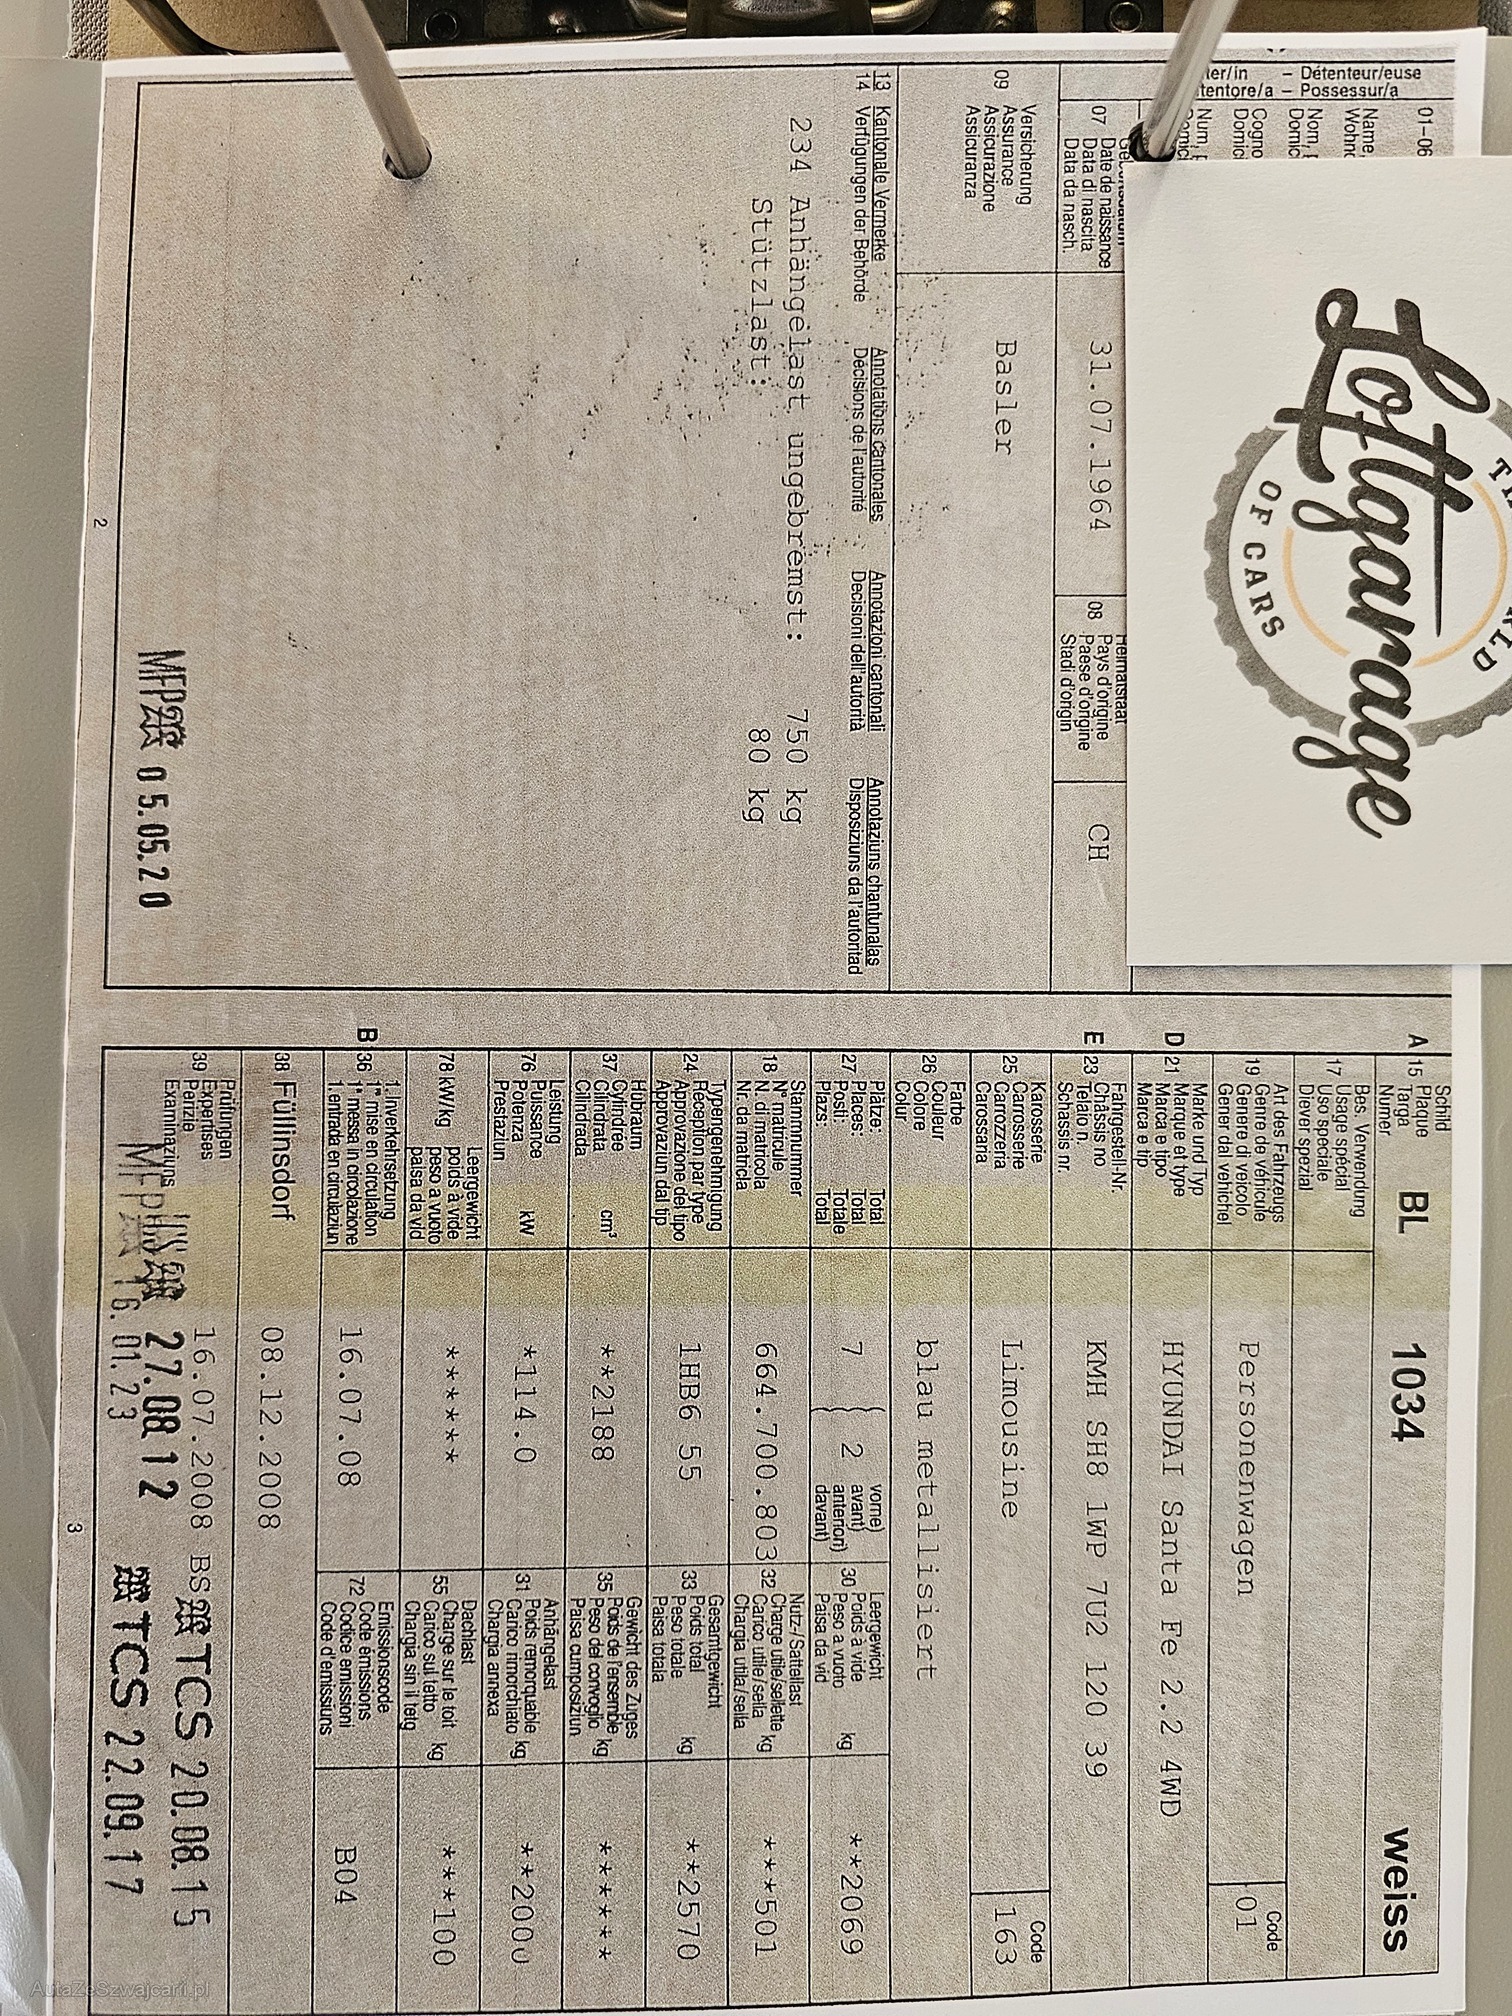 Détenteur/euse
Possessur/a
01-06
07
Date de naissance
Data di nascita
Data da nasch.
31.07.1964
08
Pays d'origine
Paese d'origine
Stadi d'origin
CH
09
Versicherung
Assurance
Assicurazione
Assicuranza
Basler
13 Kantonale Vermerke Annotations cantonales Annotazioni cantonali Annotaziuns chantunalas
14 Verfügungen der Behörde Décisions de l'autorité Decisioni dell'autorità Disposiziuns da l'autoritad
234 Anhängelast ungebremst: 750 kg
Stützlast: 80 kg
05.05.20
2
Loftgarage
OF CARS
A
15
Schild
Plaque
Targa
Numer
BL 1034 weiss
17
Bes. Verwendung
Usage spécial
Uso speciale
Diever spezial
19
Art des Fahrzeugs
Genre de véhicule
Genere di veicolo
Gener dal vehichel
Personenwagen
Code
01
D
21
Marke und Typ
Marque et type
Marca e tipo
Marca e tip
HYUNDAI Santa Fe 2.2 4WD
E
23
Fahrgestell-Nr.
Châssis no
Telaio n.
Schassis nr.
KMH SH8 1WP 7U2 120 39
25
Karosserie
Carrosserie
Carrozzeria
Carossaria
Limousine
Code
163
26
Farbe
Couleur
Colore
Colur
blau metallisiert
27
Plätze: Total
Places: Total
Posti: Totale
Plazs: Total
7
2
vorne)
avant)
anteriori)
davant)
30
Leergewicht
Poids à vide
Peso a vuoto
Paisa da vid
kg
**2069
18
Stammnummer
N° matricule
N. di matricola
Nr. da matricla
664.700.803
32
Nutz-/Sattellast
Charge utile/sellette
Carico utile/sella
Chargia utila/sella
kg
***501
24
Typengenehmigung
Réception par type
Approvazione del tipo
Approvaziun dal tip
1HB6 55
33
Gesamtgewicht
Poids total
Peso totale
Paisa totala
kg
**2570
37
Hubraum
Cylindrée
Cilindrata
Cilindrada
cm³
**2188
35
Gewicht des Zuges
Poids de l'ensemble
Peso del convoglio
Paisa cumposiziun
kg
******
76
Leistung
Puissance
Potenza
Prestaziun
kW
*114.0
31
Anhängelast
Poids remorquable
Carico rimorchiato
Chargia annexa
kg
**2000
78 kW/kg
Leergewicht
poids à vide
peso a vuoto
paisa da vid
******
55
Dachlast
Charge sur le toit
Carico sul tetto
Chargia sin il tetg
kg
***100
B
36
1. Inverkehrsetzung
1re mise en circulation
1a messa in circolazione
1. entrada en circulaziun
16.07.08
72
Emissionscode
Code émissions
Codice emissioni
Code d'emissiuns
B04
38 Füllinsdorf
08.12.2008
39
Prüfungen
Expertises
Perizie
Examinaziuns
16.07.2008 BS
TCS 20.08.15
27.08 12
TCS 22.09.17
16.01.23
3
AutaZeSzwajcarii.pl